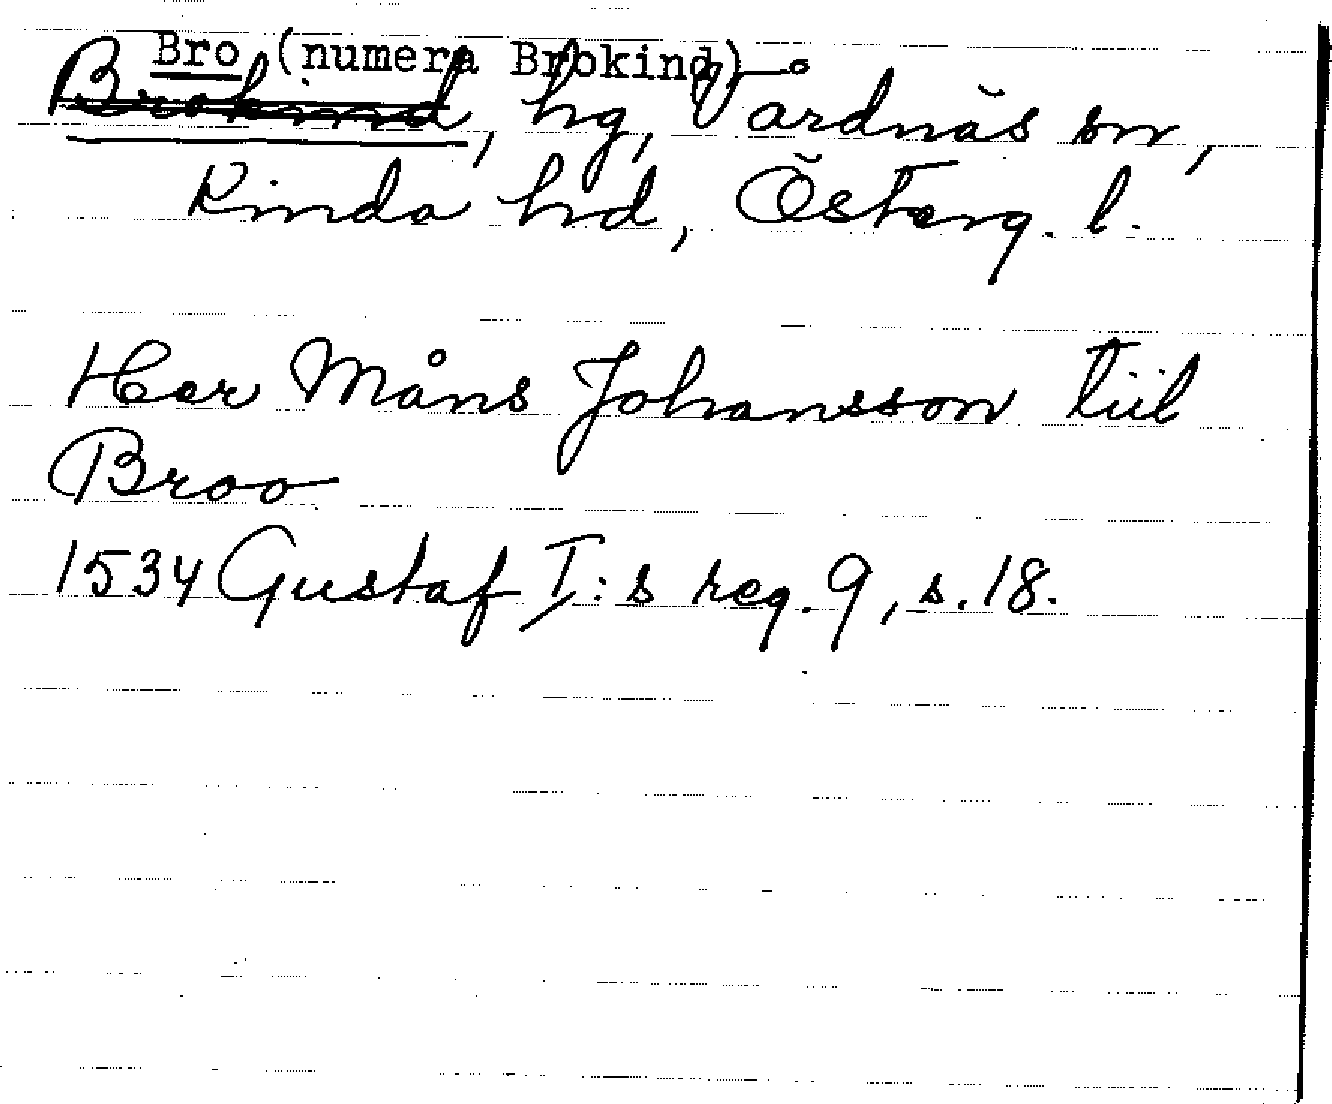 Bro (numera Brokind)
Brokind, hg, Vårdnäs sn,
Kinda hd, Österg. l.
Her Måns Johansson tiil
Broo
1534 Gustaf I:s reg. 9, s. 18.